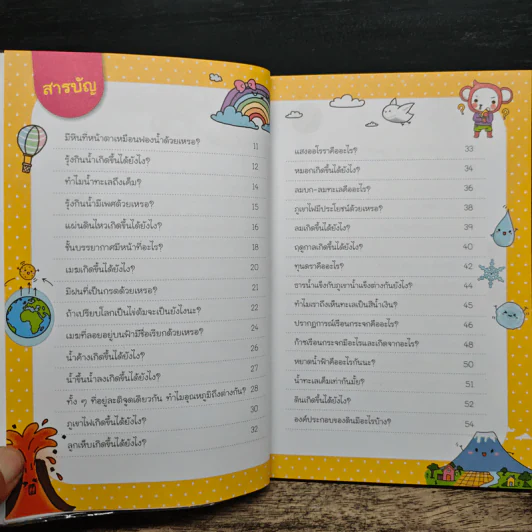 สารบัญ
มีหินที่หน้าตาเหมือนฟองน้ำด้วยเหรอ? 11
รุ้งกินน้ำเกิดขึ้นได้ยังไง? 12
ทำไมน้ำทะเลถึงเค็ม? 14
รุ้งกินน้ำมีเพศด้วยเหรอ? 15
แผ่นดินไหวเกิดขึ้นได้ยังไง? 16
ชั้นบรรยากาศมีหน้าที่อะไร? 18
เมฆเกิดขึ้นได้ยังไง? 20
มีฝนที่เป็นกรดด้วยเหรอ? 21
ถ้าเปรียบโลกเป็นไข่ต้มจะเป็นยังไงนะ? 22
เมฆที่ลอยอยู่บนฟ้ามีชื่อเรียกด้วยเหรอ? 24
น้ำค้างเกิดขึ้นได้ยังไง? 26
น้ำขึ้นน้ำลงเกิดขึ้นได้ยังไง? 27
ทั้ง ๆ ที่อยู่ละติจูดเดียวกัน ทำไมอุณหภูมิถึงต่างกัน? 28
ภูเขาไฟเกิดขึ้นได้ยังไง? 30
ลูกเห็บเกิดขึ้นได้ยังไง? 32
แสงออโรราคืออะไร? 33
หมอกเกิดขึ้นได้ยังไง? 34
ลมบก-ลมทะเลคืออะไร? 36
ภูเขาไฟมีประโยชน์ด้วยเหรอ? 38
ลมเกิดขึ้นได้ยังไง? 39
ฤดูกาลเกิดขึ้นได้ยังไง? 40
ทุนดราคืออะไร? 42
ธารน้ำแข็งกับภูเขาน้ำแข็งต่างกันยังไง? 44
ทำไมเราถึงเห็นทะเลเป็นสีน้ำเงิน? 45
ปรากฏการณ์เรือนกระจกคืออะไร? 46
ก๊าซเรือนกระจกมีอะไรและเกิดจากอะไร? 48
หยาดน้ำฟ้าคืออะไรกันนะ? 50
น้ำทะเลเค็มเท่ากันมั้ย? 51
ดินเกิดขึ้นได้ยังไง? 52
องค์ประกอบของดินมีอะไรบ้าง? 54